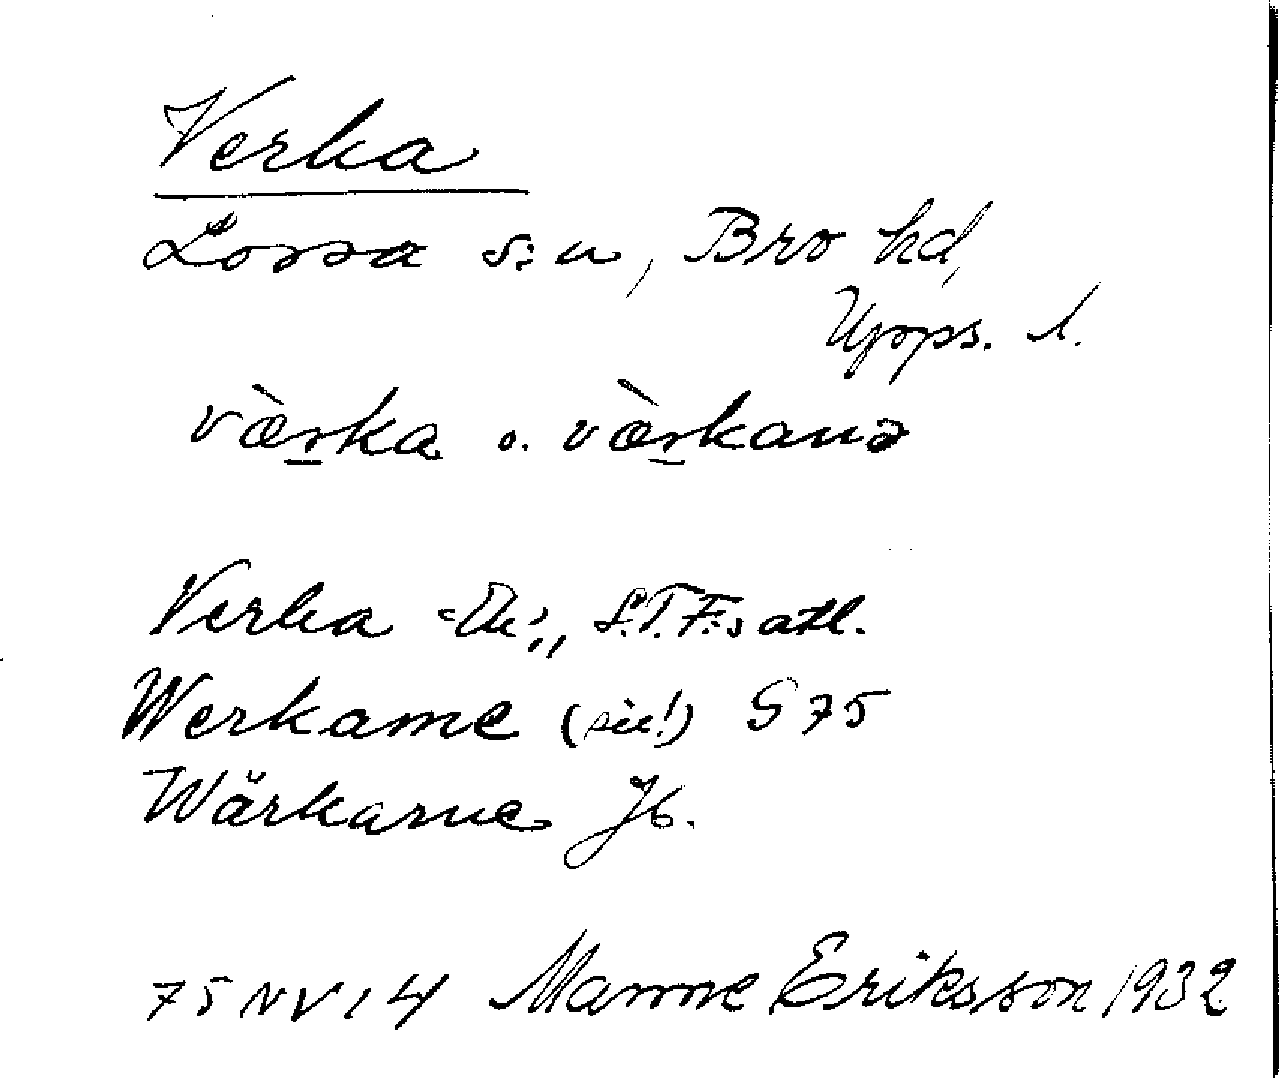 Verka
Lossa s:n, Bro hd,
Upps. l.
vàrka o. vàrkanə
Verka S.T.F:s atl.
Werkame (sic!) S 75
Wärkarne Jb.
75 NV, 4 Manne Eriksson 1932